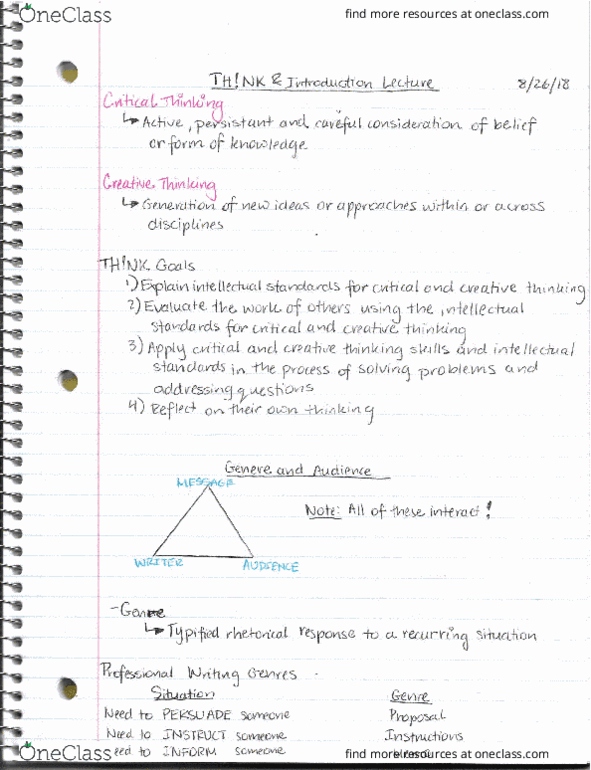 OneClass
find more resources at oneclass.com
TH!NK & Introduction Lecture
8/26/18
Critical Thinking
↳ Active, persistant and careful consideration of belief
or form of knowledge
Creative Thinking
↳ Generation of new ideas or approaches within or across
disciplines
TH!NK Goals
1) Explain intellectual standards for critical and creative thinking
2) Evaluate the work of others using the intellectual
standards for critical and creative thinking
3) Apply critical and creative thinking skills and intellectual
standards in the process of solving problems and
addressing questions
4) Reflect on their own thinking
Genere and Audience
MESSAGE
Note: All of these interact!
WRITER AUDIENCE
- Genre
↳ Typified rhetorical response to a recurring situation
Professional Writing Genres
Situation Genre
Need to PERSUADE someone Proposal
Need to INSTRUCT someone Instructions
eed to INFORM someone
OneClass
find more resources at oneclass.com